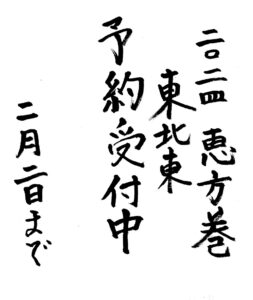 二〇二四 恵方巻
東北東
予約受付中
二月二日まで